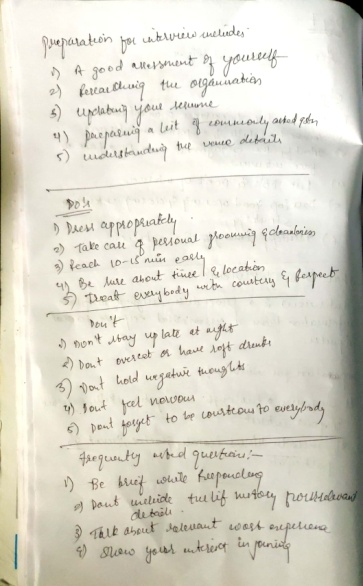 Preparation for interview includes:
1) A good assessment of yourself
2) Researching the organisation
3) Updating your resume
4) Preparing a list of commonly asked qsn
5) understanding the venue details
Do's
1) Dress appropriately
2) Take care of personal grooming & cleanliness
3) Reach 10-15 min early
4) Be sure about time & location
5) Treat everybody with courtesy & Respect
Don't
1) Don't stay up late at night
2) Dont overeat or have soft drinks
3) Dont hold negative thoughts
4) Dont feel nervous
5) Dont forget to be courteous to everybody
Frequently asked questions:-
1) Be brief while Responding
2) Dont include the life history
details
3) Talk about relevant work experience
4) Show your interest in joining